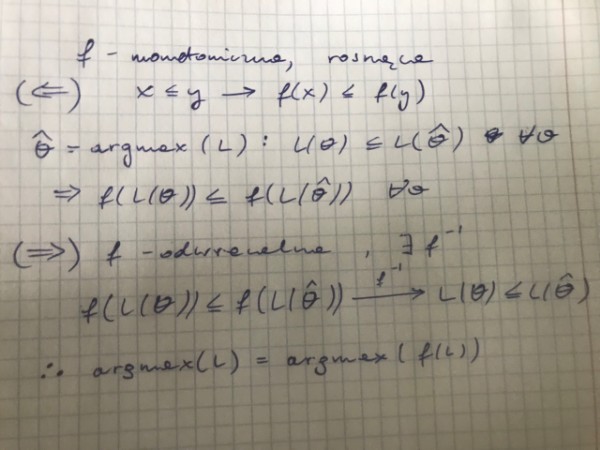 f - monotoniczna, rosnąca
(⇐) x ≤ y → f(x) ≤ f(y)
θ̂ = argmax (L) : L(θ) ≤ L(θ̂) ∀θ
⇒ f(L(θ)) ≤ f(L(θ̂)) ∀θ
(⇒) f - odwracalna, ∃ f⁻¹
f(L(θ)) ≤ f(L(θ̂)) —f⁻¹→ L(θ) ≤ L(θ̂)
∴ argmax(L) = argmax(f(L))